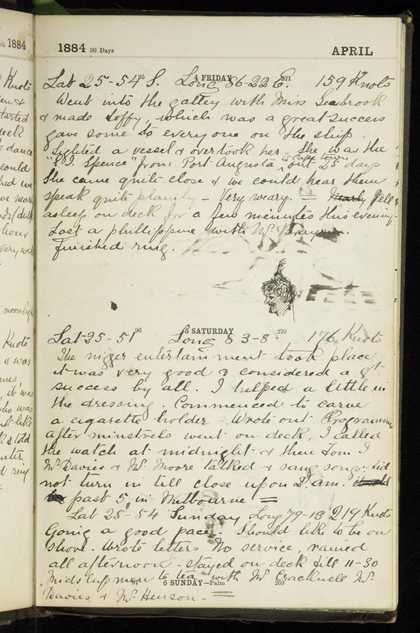 1884
1884 30 Days APRIL
4 FRIDAY
Lat 25-54 S. Long 86-22 E. 159 Knots
Went into the galley with Miss Seabrook
& made Toffy, which was a great success
gave some to everyone on the ship.
Sighted a vessel & overtook her. She was the
Spence" from Port Augusta, out 25 days
She came quite close & we could hear them
speak quite plainly - Very weary. Fell
asleep on deck for a few minutes this evening
Lost a phillippine with Mr
Finished rug.
5 SATURDAY
Lat 25-51 Long 83-8 176 Knots
The nigger entertainment took place
it was very good & considered a gt
success by all. I helped a little in
the dressing. Commenced to carve
a cigarette holder - Wrote out Programme
after minstrels went on deck, I called
the watch at midnight & then Tom &
Mr Davies & Mr Moore talked & sang songs did
not turn in till close upon 2 am.
past 5 in Melbourne! =
Lat 25-54 Sunday Long 79-18 219 Knots
Going a good pace. Should like to be on
shore. Wrote letter. No service, rained
all afternoon - stayed on deck till 11-30
Midshipmen to tea with Mr Cracknell Mr
6 SUNDAY—Palm
Davies & Mr Henson -